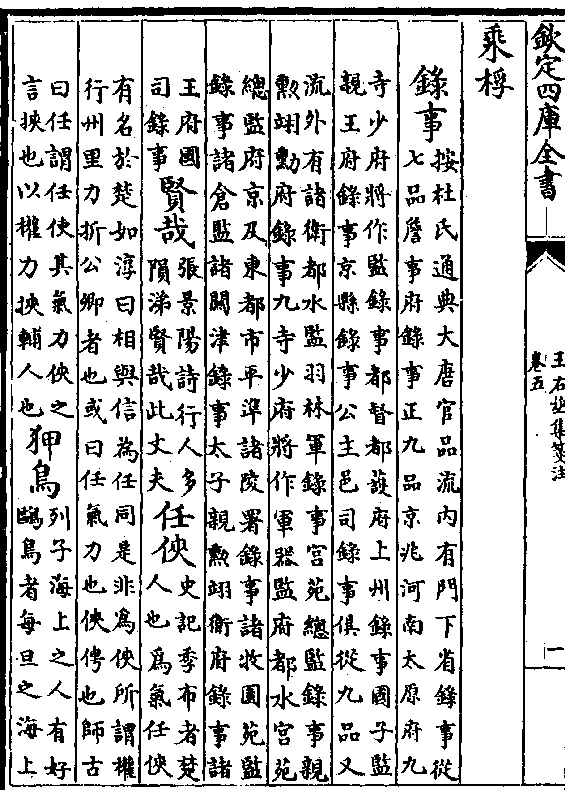 欽定四庫全書
王右丞集箋注
卷五
一
乘桴
錄事按杜氏通典大唐官品流內有門下省錄事從
七品詹事府錄事正九品京兆河南太原府九
寺少府將作監錄事都督都護府上州錄事國子監
親王府錄事京縣錄事公主邑司錄事俱從九品又
流外有諸衛都水監羽林軍錄事宮苑總監錄事親
勲翊勳府錄事九寺少府將作軍器監府都水宮苑
總監府京及東都市平準諸陵署錄事諸牧園苑監
錄事諸倉監諸關津錄事太子親勲翊衛府錄事諸
王府國
司錄事
賢哉張景陽詩行人多
隕涕賢哉此丈夫
任俠史記季布者楚
人也為氣任俠
有名於楚如淳曰相與信為任同是非為俠所謂權
行州里力折公卿者也或曰任氣力也俠俜也師古
曰任謂任使其氣力俠之
言挾也以權力挾輔人也
狎鳥列子海上之人有好
鷗鳥者每旦之海上